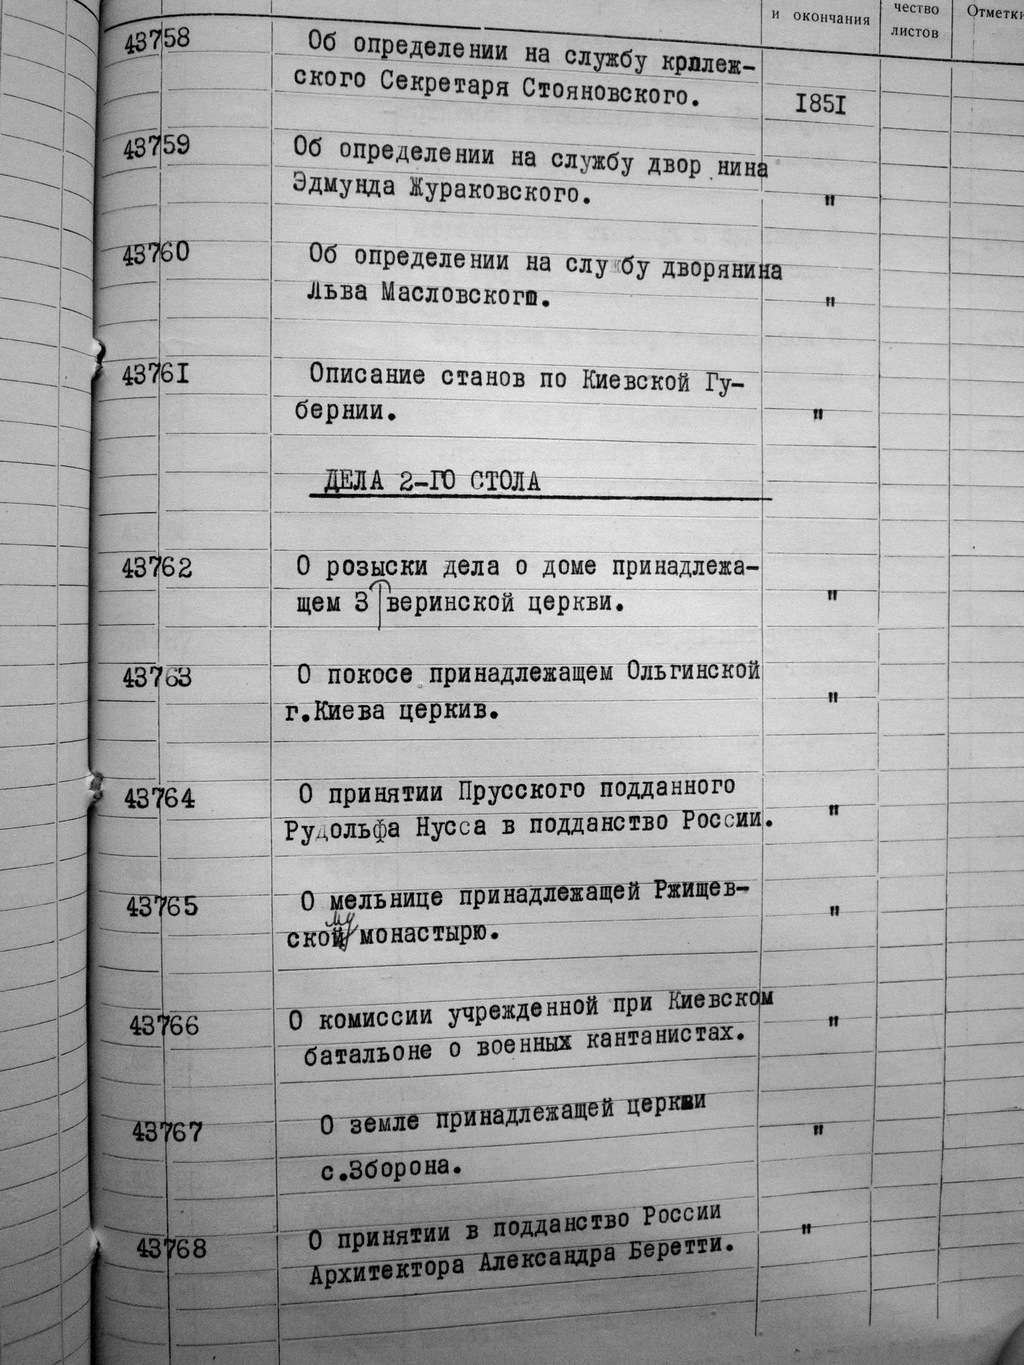 и окончания
чество
листов
Отметки
43758 Об определении на службу крллеж-
ского Секретаря Стояновского. 1851
43759 Об определении на службу двор нина
Эдмунда Жураковского. "
43760 Об определении на службу дворянина
Льва Масловского. "
43761 Описание станов по Киевской Гу-
бернии. "
ДЕЛА 2-ГО СТОЛА
43762 О розыски дела о доме принадлежа-
щем З веринской церкви. "
43763 О покосе принадлежащем Ольгинской
г.Киева церкив. "
43764 О принятии Прусского подданного
Рудольфа Нусса в подданство России. "
43765 О мельнице принадлежащей Ржищев-
 му
ской монастырю. "
43766 О комиссии учрежденной при Киевском
батальоне о военных кантанистах. "
43767 О земле принадлежащей церкви
с.Зборона. "
43768 О принятии в подданство России "
Архитектора Александра Беретти.